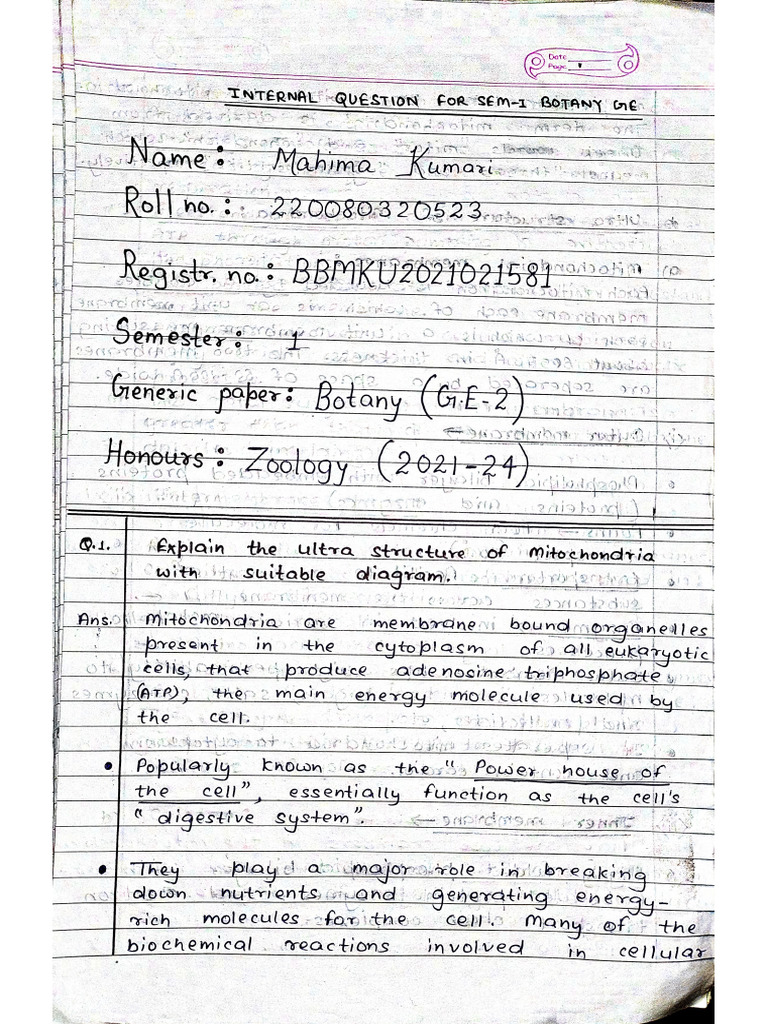 Date
Page 1
INTERNAL QUESTION FOR SEM-I BOTANY GE
Name: Mahima Kumari
Roll no.: 220080320523
Registr. no.: BBMKU2021021581
Semester: 1
Generic paper: Botany (G.E-2)
Honours: Zoology (2021-24)
Q.1. Explain the ultra structure of Mitochondria
with suitable diagram.
Ans. Mitochondria are membrane bound organelles
present in the cytoplasm of all eukaryotic
cells, that produce adenosine triphosphate
(ATP), the main energy molecule used by
the cell.
• Popularly known as the "Power house of
the cell", essentially function as the cell's
"digestive system".
• They play a major role in breaking
down nutrients and generating energy-
rich molecules for the cell. Many of the
biochemical reactions involved in cellular